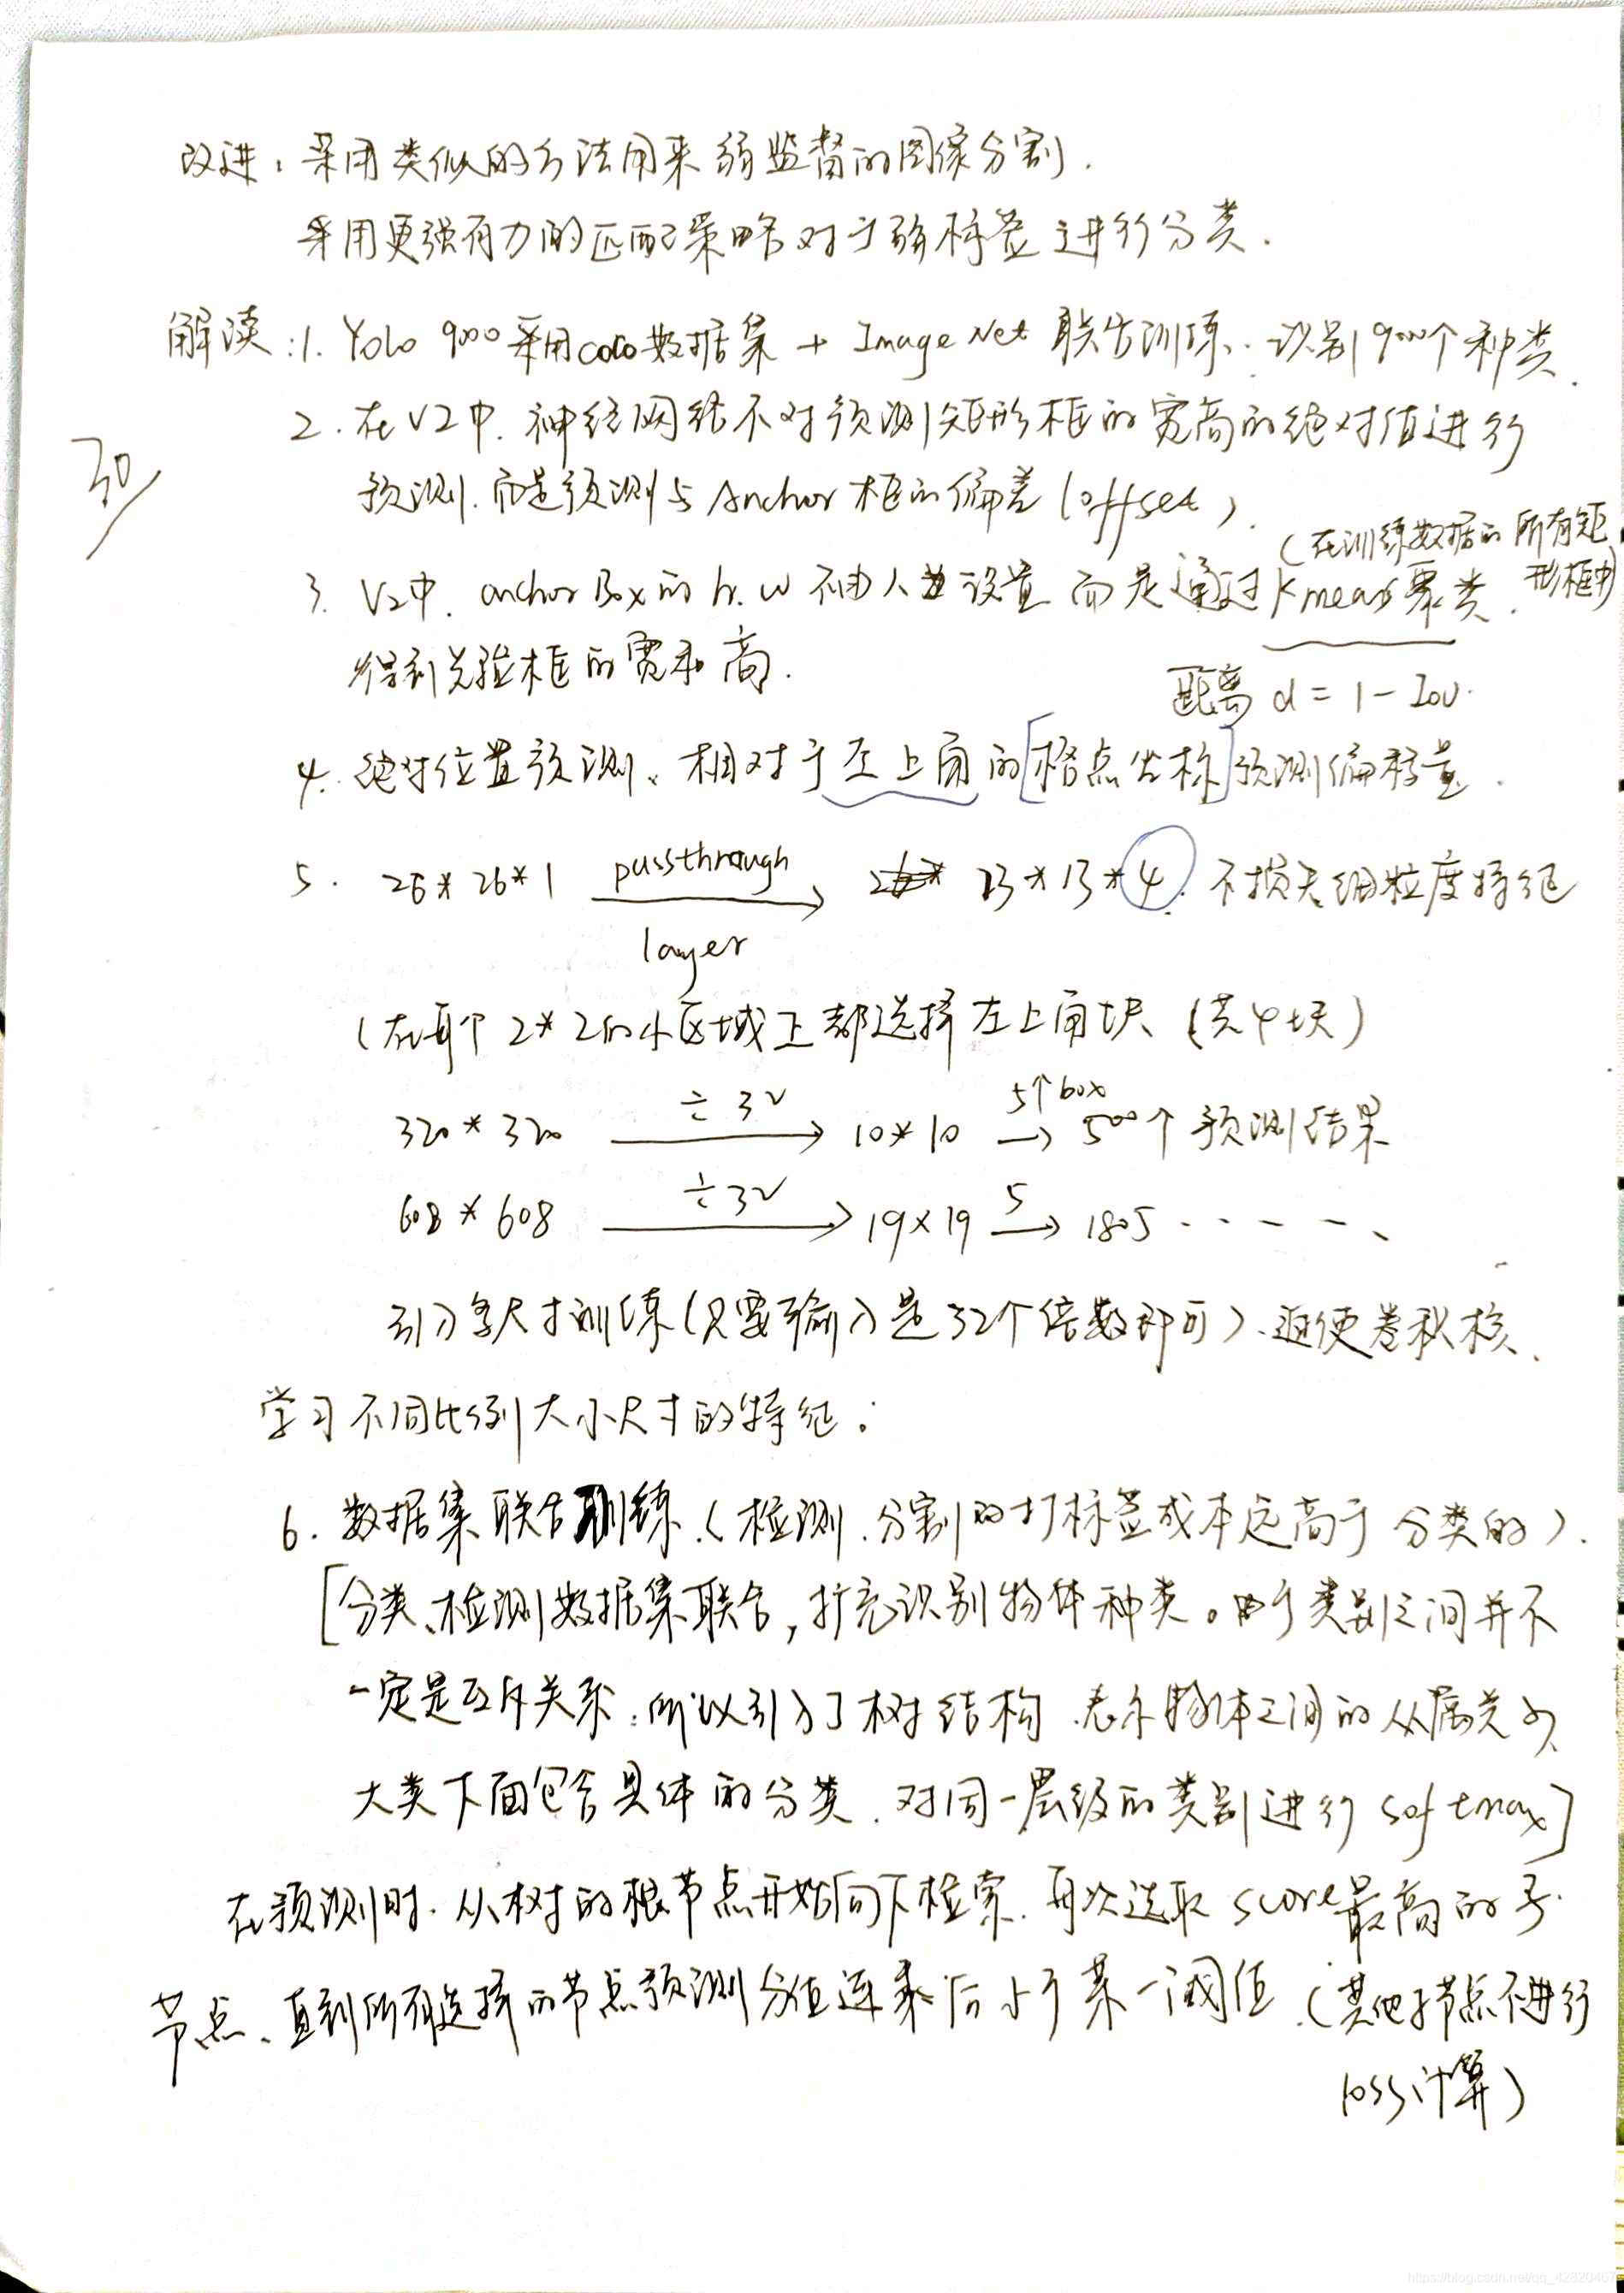 改进：采用类似的方法用来弱监督的图像分割.
采用更强有力的匹配策略对于弱标签进行分类.
解读:1. Yolo 9000采用coco数据集 + ImageNet 联合训练. 识别9000个种类.
2. 在V2中. 神经网络不对预测矩形框的宽高的绝对值进行
30
预测. 而是预测与Anchor框的偏差(offset).
(在训练数据的所有矩
形框中)
3. V2中. anchor Box的h.w不由人为设置 而是通过Kmeans聚类.
得到先验框的宽和高.
距离 d = 1 - IoU.
4. 绝对位置预测、相对于左上角的[格点坐标]预测偏移量.
5. 26*26*1 passthrough 13*13*4. 不损失细粒度特征
layer
(在每个2*2的小区域上都选择左上角块 (共4块)
320*320 ÷32 10*10 5个box 500个预测结果
608*608 ÷32 19×19 5 1805 · · - - 、
引入多尺寸训练(只要输入是32个倍数即可)、迫使卷积核.
学习不同比例大小尺寸的特征.
6. 数据集联合训练.(检测.分割的打标签成本远高于分类的).
[分类、检测数据集联合,扩充识别物体种类。由于类别之间并不
一定是互斥关系.所以引入了树结构.表示物体之间的从属关系
大类下面包含具体的分类.对同一层级的类别进行softmax]
在预测时.从树的根节点开始向下检索.每次选取score最高的子
节点、直到所有选择的节点预测分值连乘后小于某一阈值.(其他子节点不进行
loss计算)